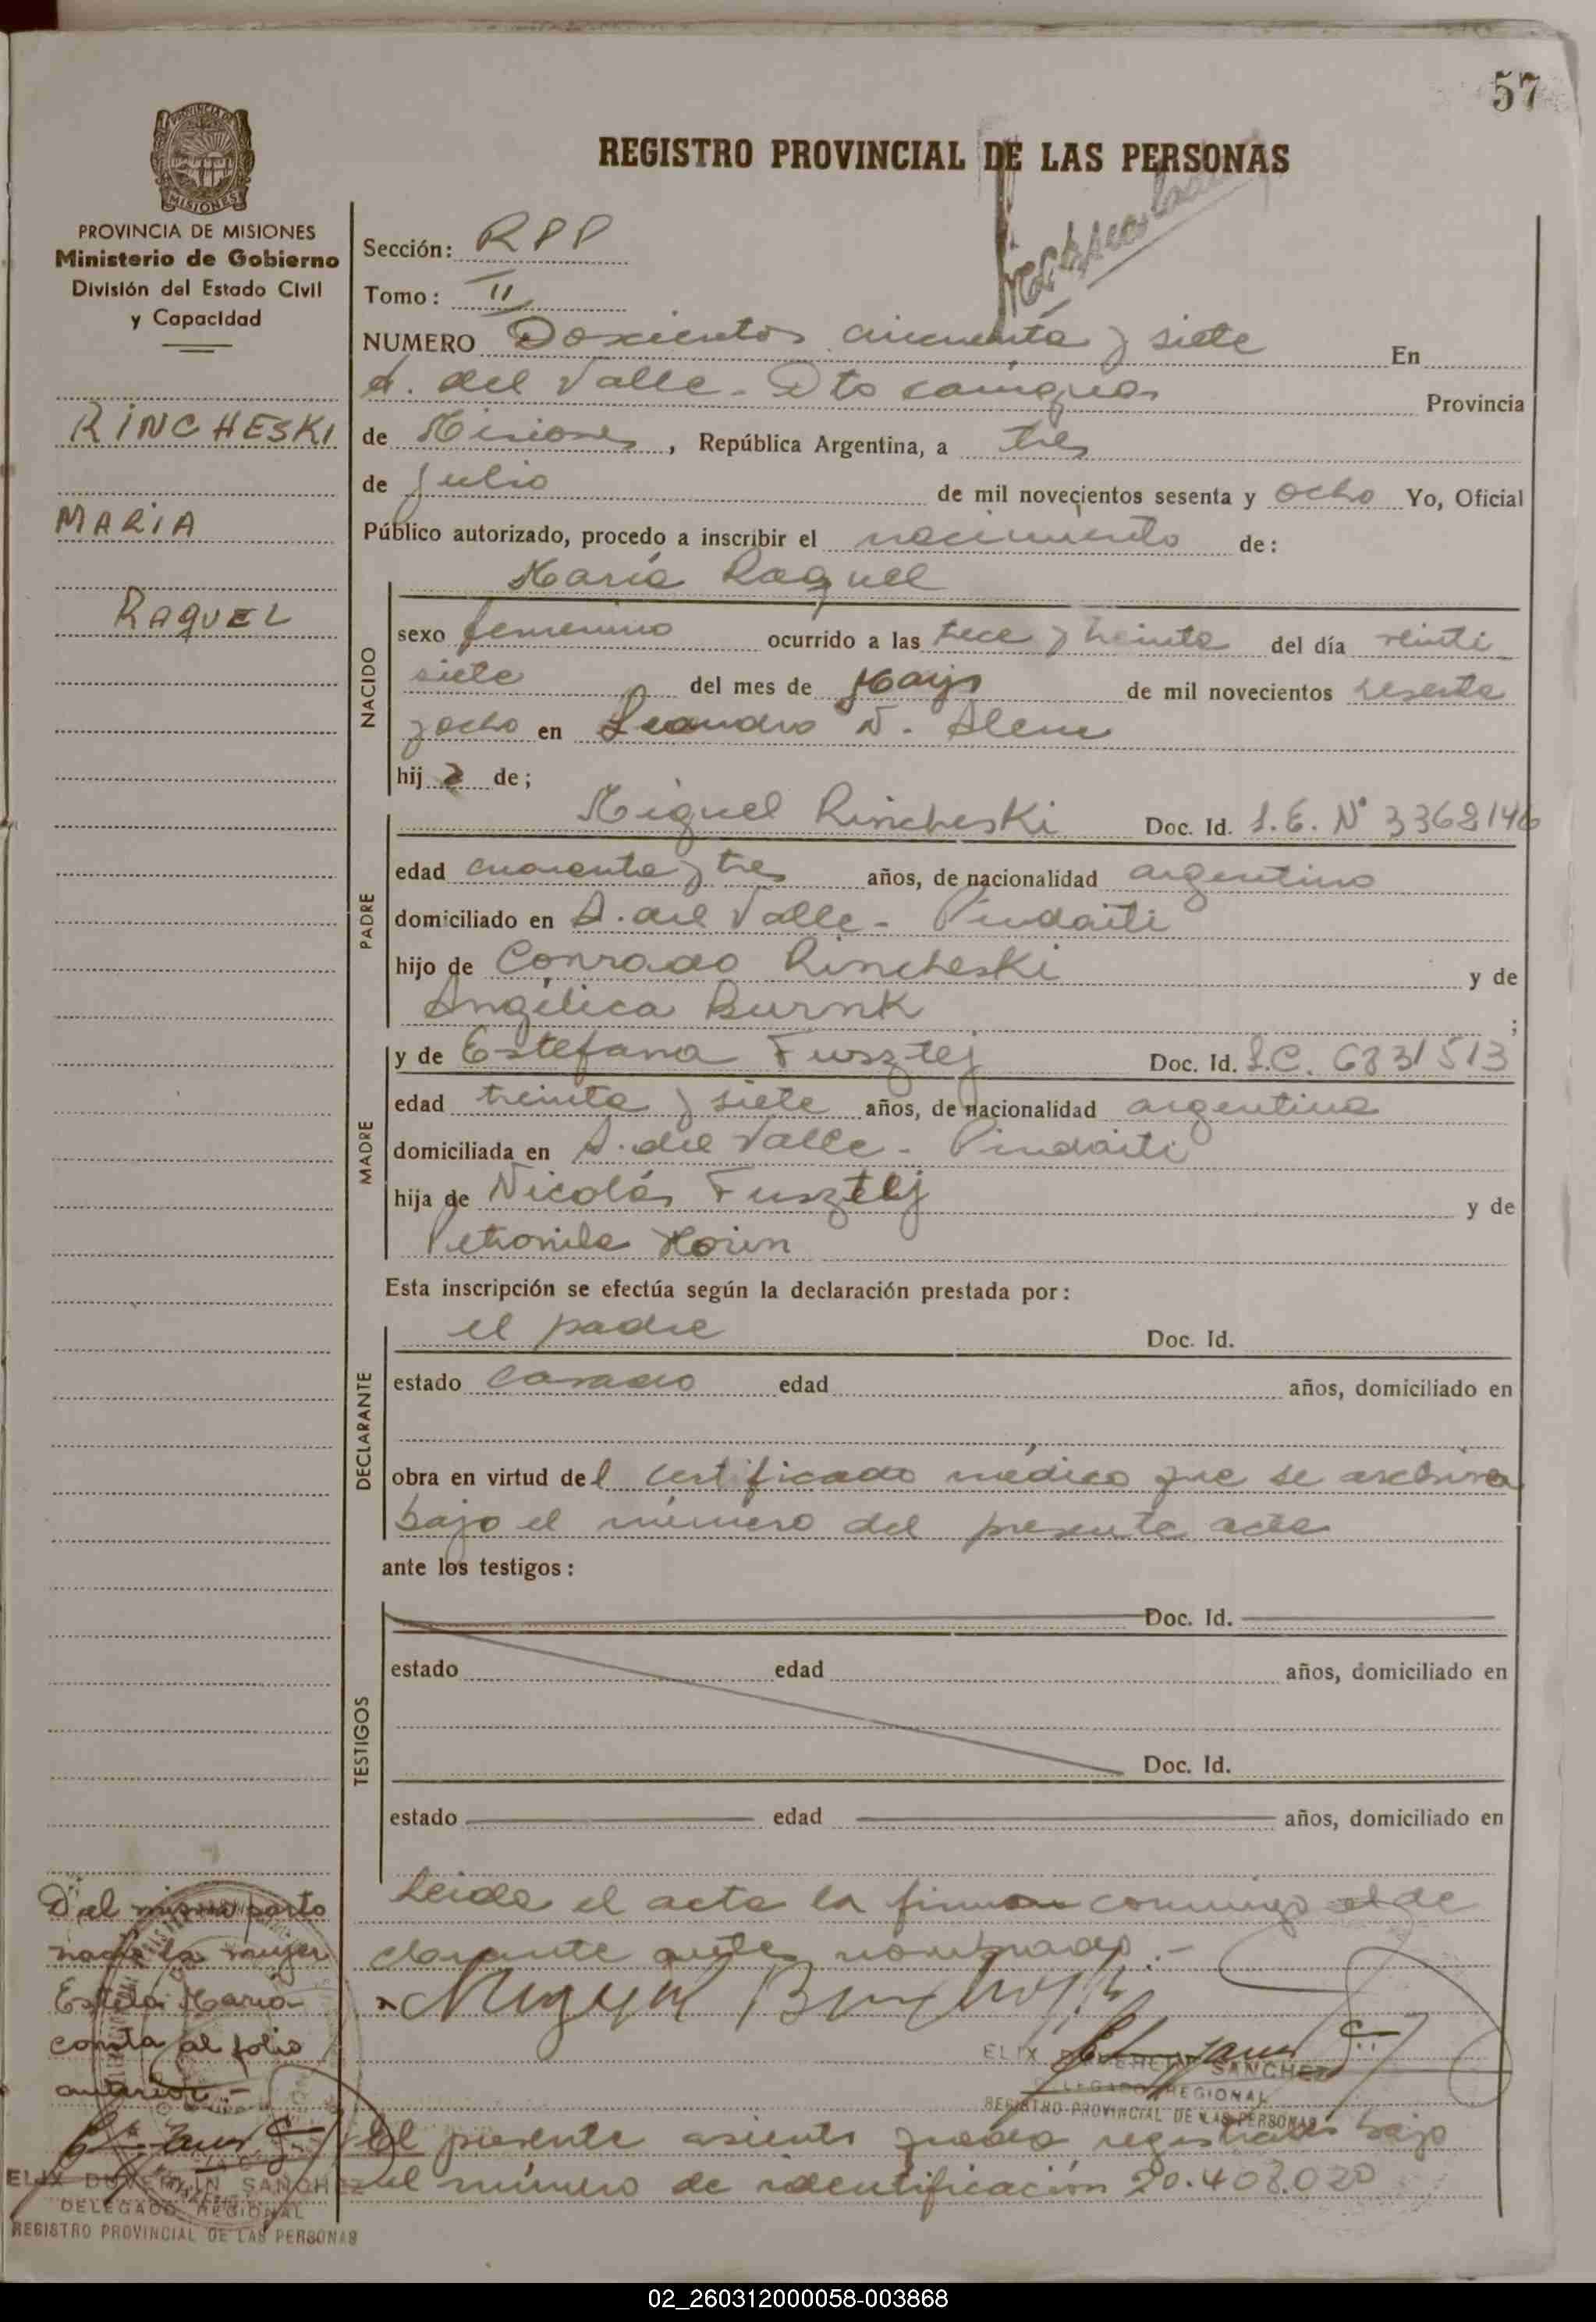 57
REGISTRO PROVINCIAL DE LAS PERSONAS
PROVINCIA DE MISIONES
MISIONES
PROVINCIA DE MISIONES
Ministerio de Gobierno
División del Estado Civil
y Capacidad
RINCHESKI
MARIA
RAQUEL
Sección: RPP
Tomo: II
NUMERO Doscientos cincuenta y siete En
A. del Valle - Dto cainguas Provincia
de Misiones, República Argentina, a tres
de Julio de mil novecientos sesenta y ocho Yo, Oficial
Público autorizado, procedo a inscribir el nacimiento de:
María Raquel
NACIDO
sexo femenino ocurrido a las trece y treinta del día veinti
siete del mes de Mayo de mil novecientos sesenta
y ocho en Leandro N. Alem
hija de;
PADRE
Miguel Rincheski Doc. Id. L.E. Nº 3368146
edad cuarenta y tres años, de nacionalidad argentino
domiciliado en A. del Valle - Pindaiti
hijo de Conrado Rincheski y de
Angélica Burnk ;
MADRE
y de Estefana Fusztej Doc. Id. L.C. 6831513
edad treinta y siete años, de nacionalidad argentina
domiciliada en A. del Valle - Pindaiti
hija de Nicolás Fusztej y de
Petronila
Esta inscripción se efectúa según la declaración prestada por:
DECLARANTE
el padre Doc. Id.
estado casado edad años, domiciliado en
obra en virtud del certificado médico que se archiva
bajo el número del presente acta
ante los testigos:
TESTIGOS
Doc. Id.
estado edad años, domiciliado en
Doc. Id.
estado edad años, domiciliado en
Leida el acta la firma conmigo el de
clarante antes nombrado.-
Miguel
ELIX SANCHEZ
DELEGADO REGIONAL
REGISTRO PROVINCIAL DE LAS PERSONAS
El presente asiento queda registrado bajo
el número de identificación 20.408.020
Del mismo parto
nació la mujer
Estela María
consta al folio
anterior.-
ELIX SANCHEZ
DELEGADO REGIONAL
REGISTRO PROVINCIAL DE LAS PERSONAS
02_260312000058-003868